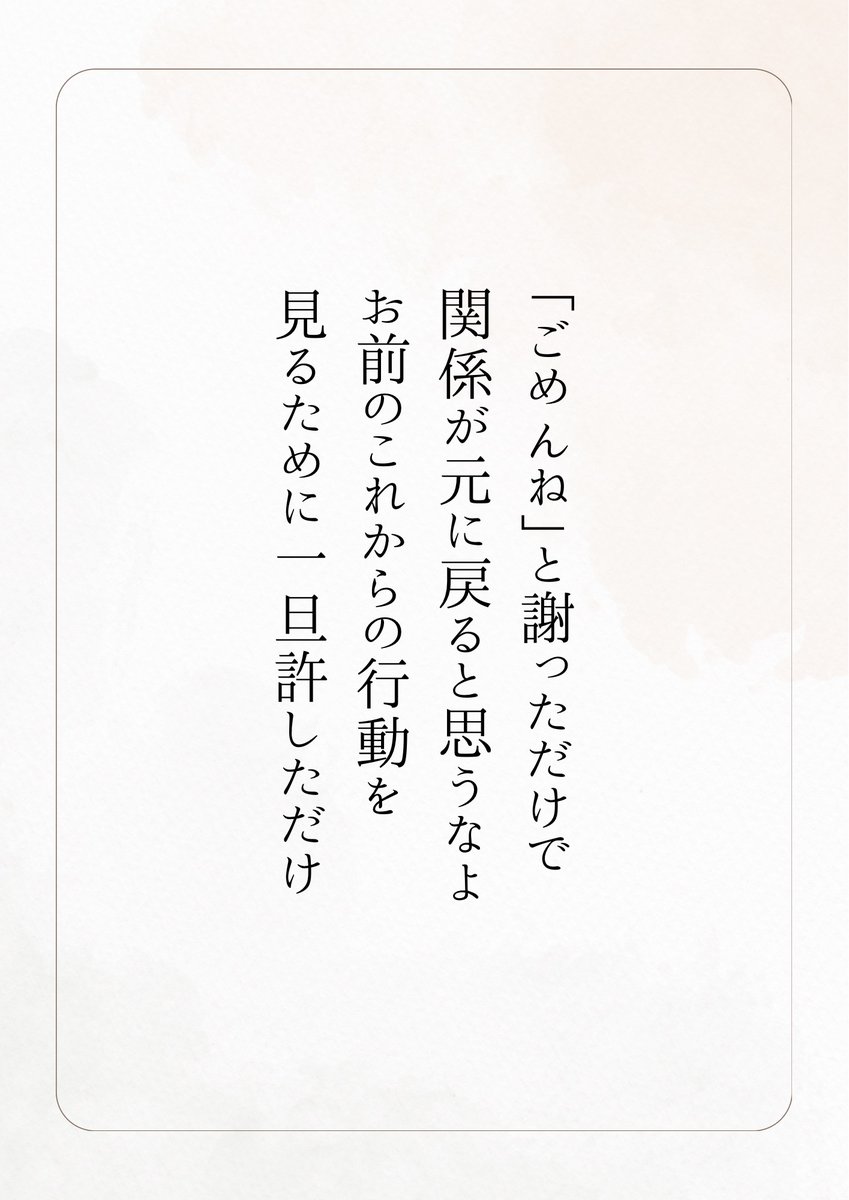 「ごめんね」と謝っただけで
関係が元に戻ると思うなよ
お前のこれからの行動を
見るために一旦許しただけ